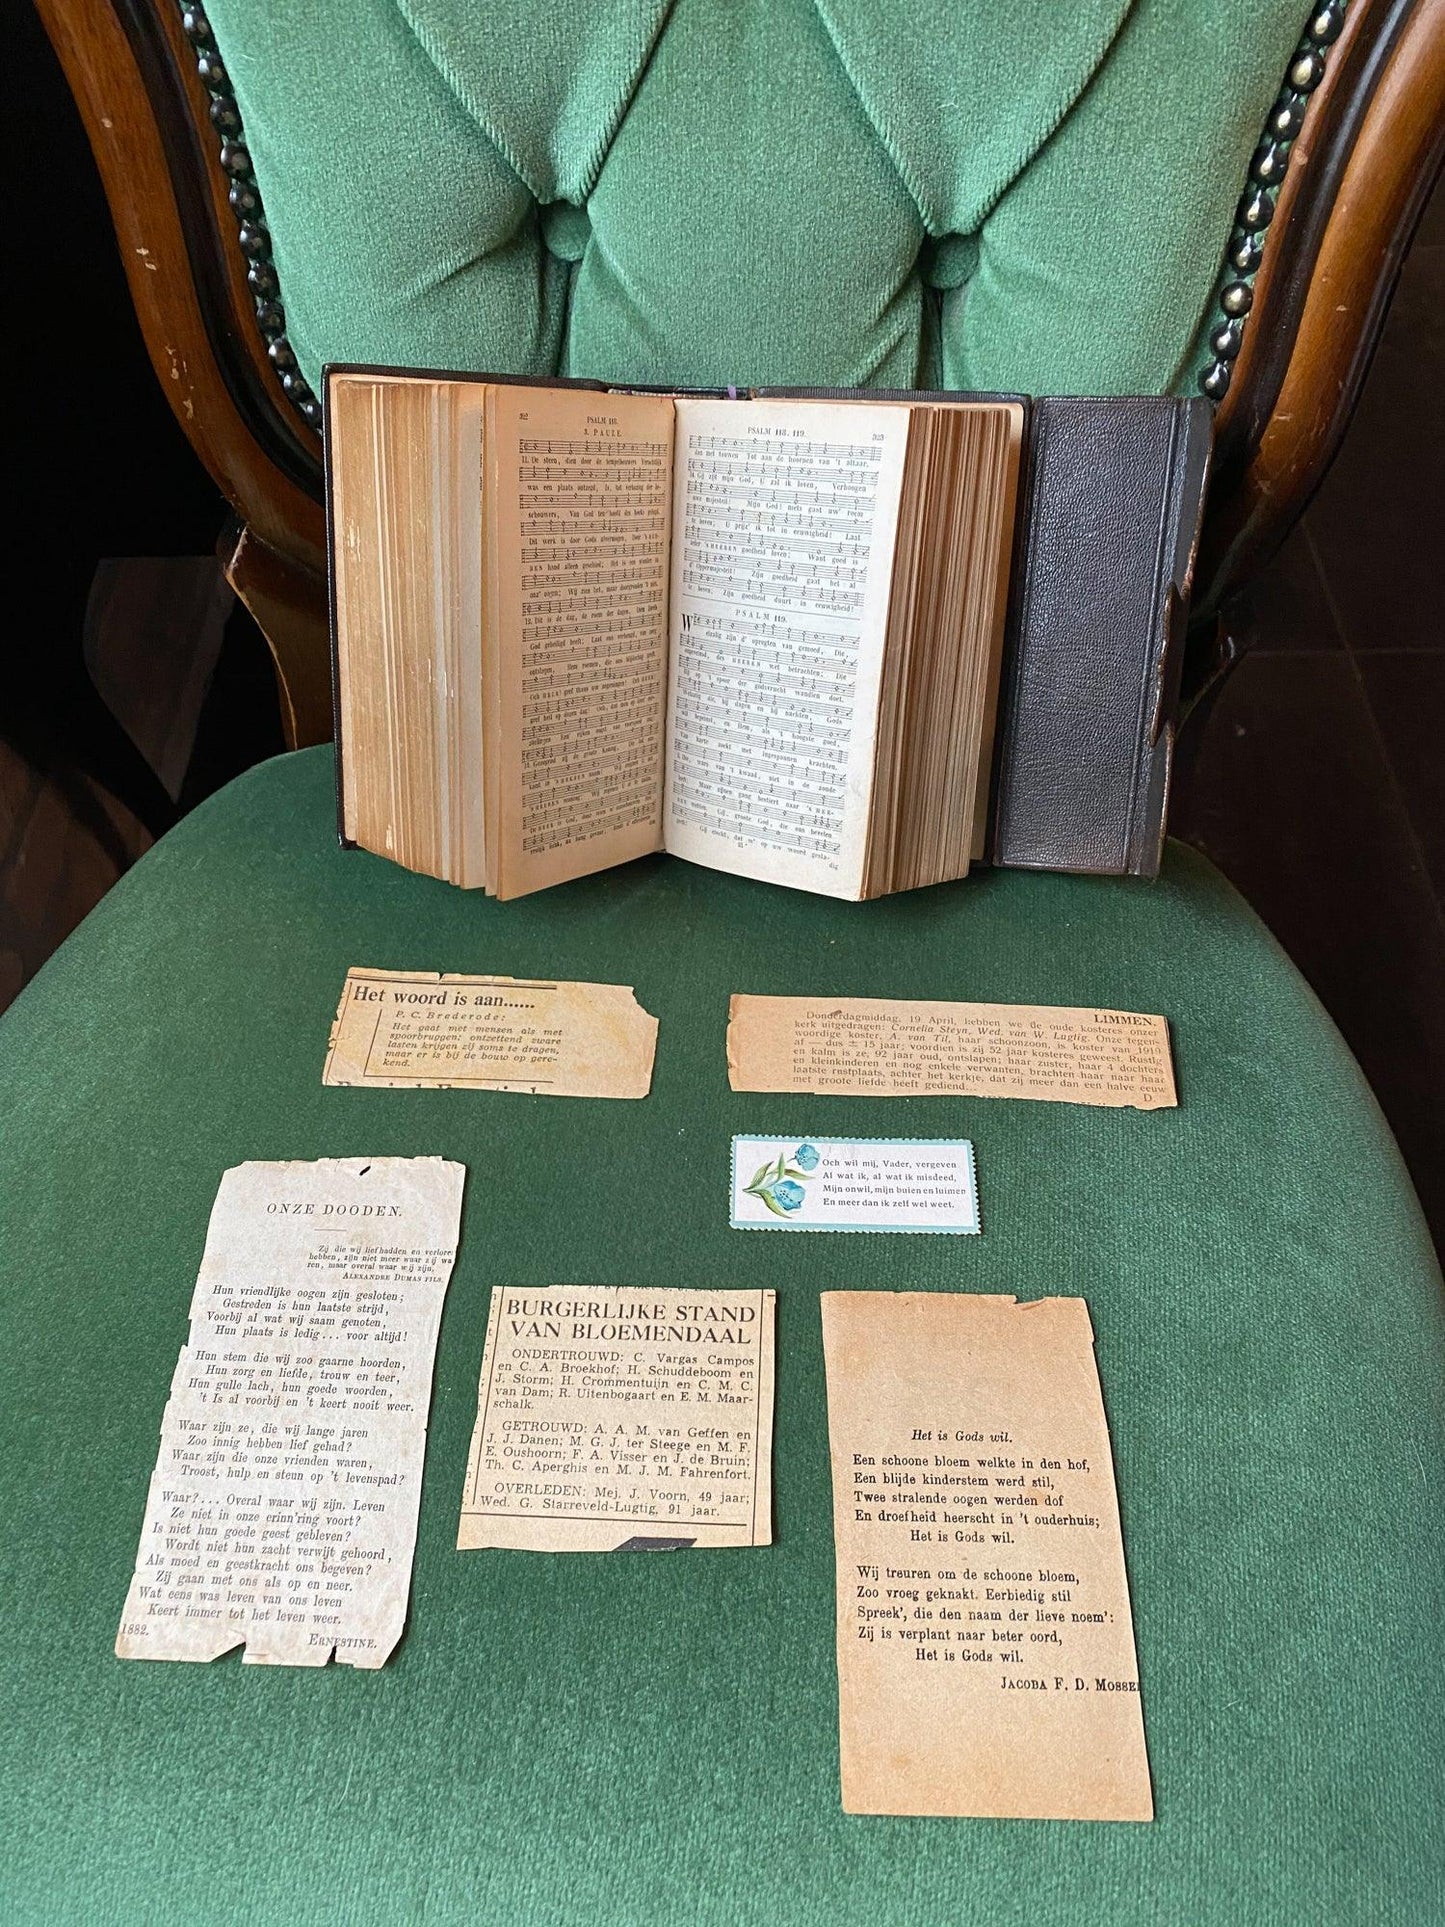 322
PSALM 118.
3. PAUZE
11. De steen, dien door de tempelbouwers Verachtlijk
was een plaats ontzegd, Is, tot verbazing der be-
schouwers, Van God ten hoofd des hoeks gelegd.
Dit werk is door Gods alvermogen, Door 's HEE-
REN hand alleen geschied; Het is een wonder in
onz' oogen; Wij zien het, maar doorgronden 't niet.
12. Dit is de dag, de roem der dagen, Dien
God geheiligd heeft; Laat ons verheugd, van zorg
ontslagen, Hem roemen, die ons blijdschap geeft.
PSALM 118. 119.
323
dat met touwen Tot aan de hoornen van 't altaar.
14. Gij zijt mijn God, U zal ik loven, Verhoogen
uwe majesteit; Mijn God! niets gaat uw' roem
te boven; U prijz' ik tot in eeuwigheid! Laat
ieder 's HEEREN goedheid loven; Want goed is
d' Oppermajesteit! Zijn goedheid gaat het al
te boven; Zijn goedheid duurt in eeuwigheid!
PSALM 119.
Welzalig zijn d' opregten van gemoed, Die,
ongeveinsd, des HEEREN wet betrachten; Die
Hij op 't spoor der godsvrucht wandlen doet.
Welzalig die, bij dagen en bij nachten, Gods
wil bepeinst, en Hem, als 't hoogste goed,
Van harte zoekt met ingespannen krachten.
2. Die, wars van 't kwaad, niet in de zonde
leeft, Maar zijnen gang bestiert naar 's HEE-
REN wetten. Gij, groote God, die ons bevelen
geeft: Gij eischt, dat w' op uw woord gesta-
21*
dig
Het woord is aan......
P. C. Brederode:
Het gaat met mensen als met
spoorbruggen: ontzettend zware
lasten krijgen zij soms te dragen,
maar er is bij de bouw op gere-
kend.
LIMMEN.
Donderdagmiddag, 19 April, hebben we de oude kosteres onzer
kerk uitgedragen: Cornelia Steyn, Wed. van W. Luglig. Onze tegen-
woordige koster, A. van Til, haar schoonzoon, is koster van 1919
af — dus ± 15 jaar; voordien is zij 52 jaar kosteres geweest. Rustig
en kalm is ze, 92 jaar oud, ontslapen; haar zuster, haar 4 dochters
en kleinkinderen en nog enkele verwanten, brachten haar naar haar
laatste rustplaats, achter het kerkje, dat zij meer dan een halve eeuw
met groote liefde heeft gediend...
D.
Och wil mij, Vader, vergeven
Al wat ik, al wat ik misdeed,
Mijn onwil, mijn buien en luimen
En meer dan ik zelf wel weet.
ONZE DOODEN.
Zij die wij liefhadden en verlore
hebben, zijn niet meer waar zij wa
ren, maar overal waar wij zijn.
ALEXANDRE DUMAS FILS.
Hun vriendlijke oogen zijn gesloten;
Gestreden is hun laatste strijd,
Voorbij al wat wij saam genoten,
Hun plaats is ledig... voor altijd!
Hun stem die wij zoo gaarne hoorden,
Hun zorg en liefde, trouw en teer,
Hun gulle lach, hun goede woorden,
't Is al voorbij en 't keert nooit weer.
Waar zijn ze, die wij lange jaren
Zoo innig hebben lief gehad?
Waar zijn die onze vrienden waren,
Troost, hulp en steun op 't levenspad?
Waar?... Overal waar wij zijn. Leven
Ze niet in onze erinn'ring voort?
Is niet hun goede geest gebleven?
Wordt niet hun zacht verwijt gehoord,
Als moed en geestkracht ons begeven?
Zij gaan met ons als op en neer.
Wat eens was leven van ons leven
Keert immer tot het leven weer.
1882.
ERNESTINE.
BURGERLIJKE STAND
VAN BLOEMENDAAL
ONDERTROUWD: C. Vargas Campos
en C. A. Broekhof; H. Schuddeboom en
J. Storm; H. Crommentuijn en C. M. C.
van Dam; R. Uitenbogaart en E. M. Maar-
schalk.
GETROUWD: A. A. M. van Geffen en
J. J. Danen; M. G. J. ter Steege en M. F.
E. Oushoorn; F. A. Visser en J. de Bruin;
Th. C. Aperghis en M. J. M. Fahrenfort.
OVERLEDEN: Mej. J. Voorn, 49 jaar;
Wed. G. Starreveld-Lugtig, 91 jaar.
Het is Gods wil.
Een schoone bloem welkte in den hof,
Een blijde kinderstem werd stil,
Twee stralende oogen werden dof
En droefheid heerscht in 't ouderhuis;
Het is Gods wil.
Wij treuren om de schoone bloem,
Zoo vroeg geknakt. Eerbiedig stil
Spreek', die den naam der lieve noem':
Zij is verplant naar beter oord,
Het is Gods wil.
JACOBA F. D. MOSSE